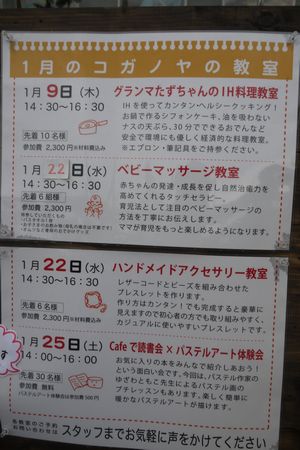 1月のコガノヤの教室
1月9日(木)
14:30～16:30
先着10名様
参加費 2,300円※材料費込み
グランマたずちゃんのIH料理教室
IHを使ってカンタン・ヘルシークッキング!
お鍋で作るシフォンケーキ、油を吸わない
ナスの天ぷら、30分でできるおでんなど
安全で環境にも優しく経済的な料理教室。
※エプロン・筆記具をご持参ください。
1月22日(水)
14:30～16:30
先着6組様
参加費 2,300円
ベビーマッサージ教室
赤ちゃんの発達・成長を促し自然治癒力を
高めてくれるタッチセラピー。
育児法として注目のベビーマッサージの
方法を丁寧にお伝えします。
ママが育児をもっと楽しめるようになります。
1月22日(水)
14:30～16:30
先着6名様
参加費 2,300円※材料費込み
ハンドメイドアクセサリー教室
レザーコードとビーズを組み合わせた
ブレスレットを作ります。
作り方はカンタン!でも完成すると豪華に
見えますので初心者の方でも取り組みやすく、
カジュアルに使いやすいブレスレットです。
1月25日(土)
14:00～16:00
先着30名様
参加費 無料
パステルアート体験会は参加費500円
Cafeで読書会×パステルアート体験会
お気に入りの本をみんなで紹介しあおう!
という面白い会です。今回は、パステル作家の
ゆざわともこ先生によるパステル画の
プチレッスンもあります。楽しく簡単に
暖かなパステルアートが描けます。
各教室のご予約
お問い合わせは
スタッフまでお気軽に声をかけてください